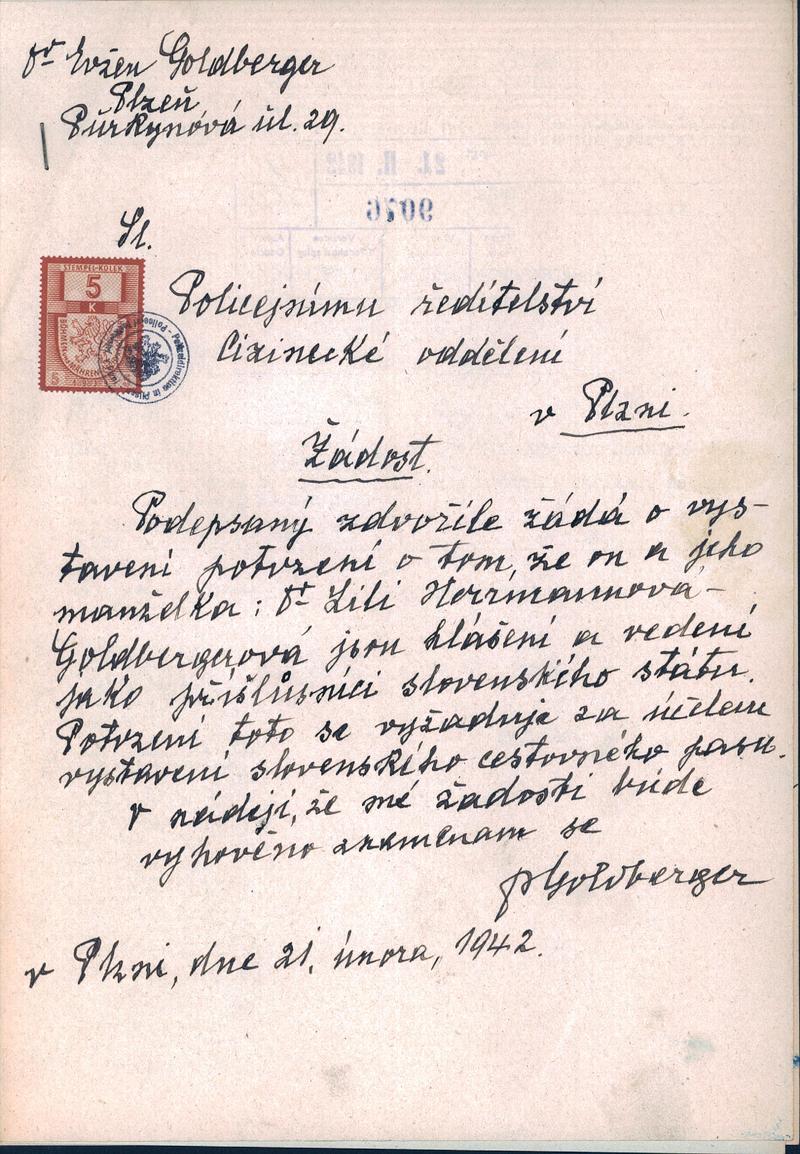 Dr Evžen Goldberger
Plzeň
Purkyňová úl. 29.
21. II. 1942
9026
Sl.
STEMPEL-KOLEK
5
K
BÖHMEN UND MÄHREN
Policejnímu ředitelství
Cizinecké oddělení
v Plzni.
Žádost.
Podepsaný zdvořile žádá o vys-
tavení potvrzení o tom, že on a jeho
manželka: Dr Lili Herrmannová-
Goldbergerová jsou hlášení a vedení
jako příslušníci slovenského státu.
Potvrzení toto se vyžaduje za účelem
vystavení slovenského cestovného pasu.
V nádeji, že mé žadosti bude
vyhovéno znamenam se
Goldberger
v Plzni, dne 21. února, 1942.